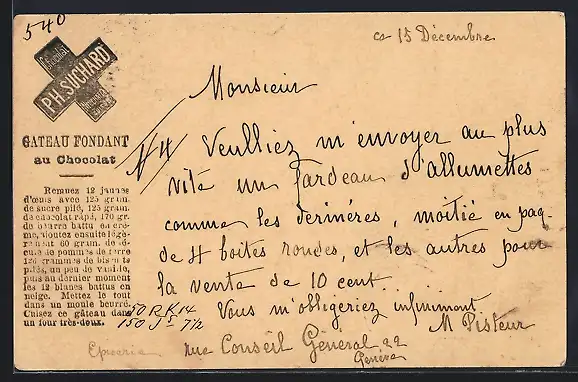 540
ce 15 Décembre
Chocolat
PH. SUCHARD
GATEAU FONDANT
au Chocolat
Remuez 12 jaunes
d'œufs avec 125 gram.
de sucre pilé, 125 gram.
de chocolat râpé, 170 gr.
de beurre battu en crè-
me, ajoutez ensuite lége-
rement 60 gram. de fé-
cule de pommes de terre
125 grammes de biscuits
pilés, un peu de vanille,
puis au dernier moment
les 12 blancs battus en
neige. Mettez le tout
dans un moule beurré.
Cuisez ce gâteau dans
un four très-doux.
Monsieur
N4
Veulliez m'envoyer au plus
vité un fardeau d'allumettes
comme les dernières, moitié en paq-
de 4 boites rondes, et les autres pour
la vente de 10 cent.
Vous m'obligeriez infinimont
M Pisteur
50 R K 14
150 J 7½
Epicerie rue Conseil Général 22
Genève